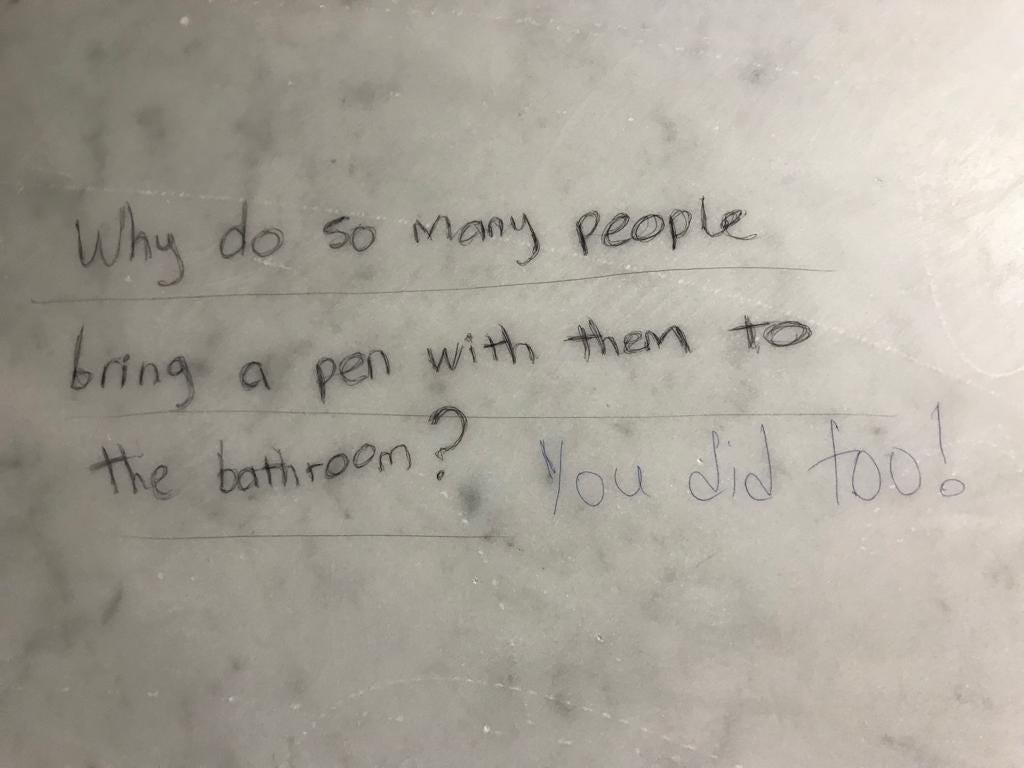 Why do so many people
bring a pen with them to
the bathroom? You did too!